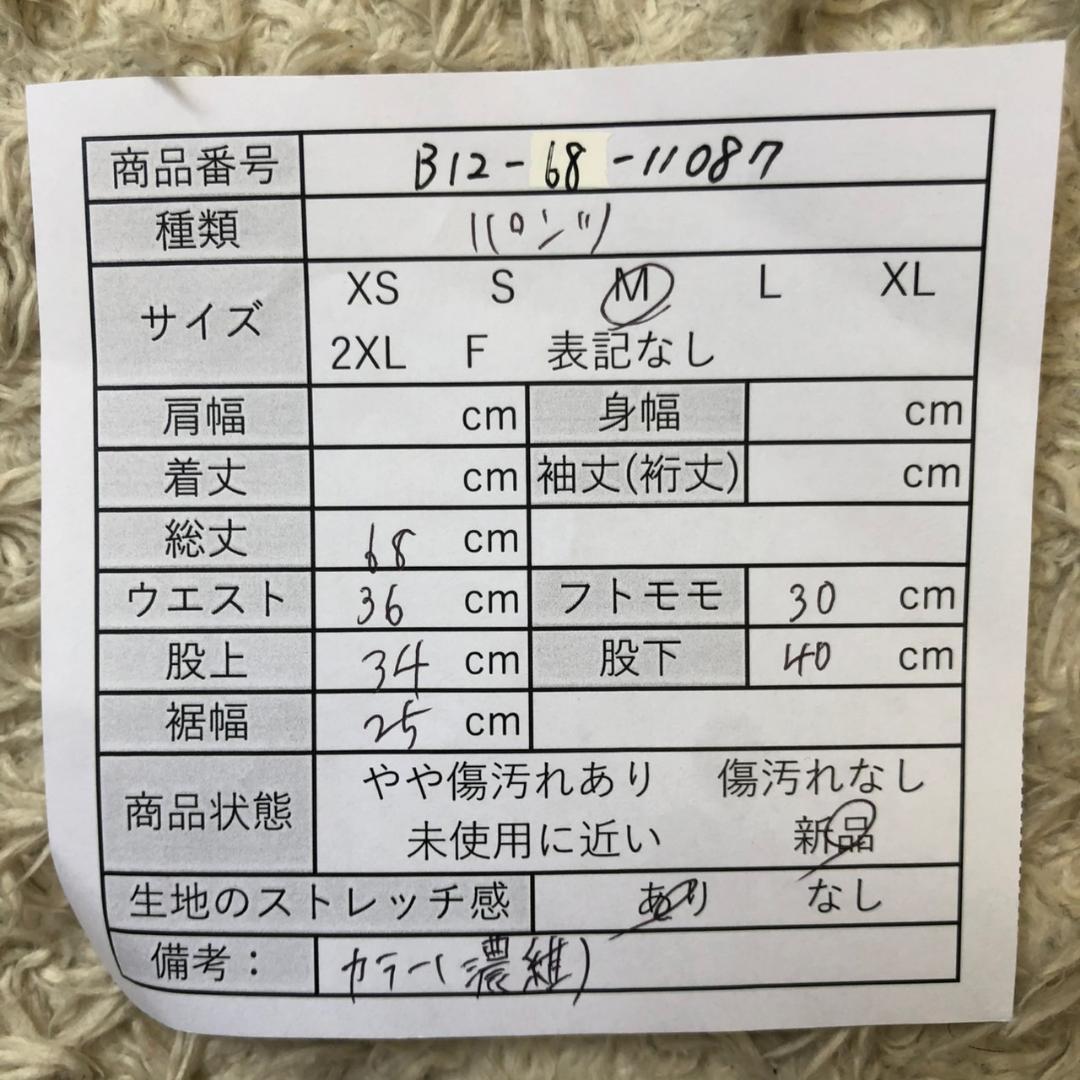 商品番号 B12-68-11087
種類 パンツ
サイズ XS S M L XL
2XL F 表記なし
肩幅 cm 身幅 cm
着丈 cm 袖丈(裄丈) cm
総丈 68 cm
ウエスト 36 cm フトモモ 30 cm
股上 34 cm 股下 40 cm
裾幅 25 cm
商品状態 やや傷汚れあり 傷汚れなし
未使用に近い 新品
生地のストレッチ感 あり なし
備考： カラー(濃